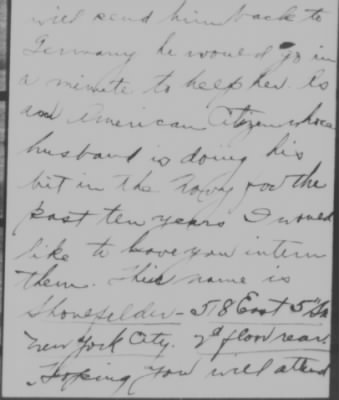 will send him back to
Germany he would go in
a minute to help her. As
an American Citizen whose
husband is doing his
bit in the Navy for the
past ten years I would
like to have you intern
them. This name is
58 East 5" St
New York City. 2d floor rear.
Hoping you will attend